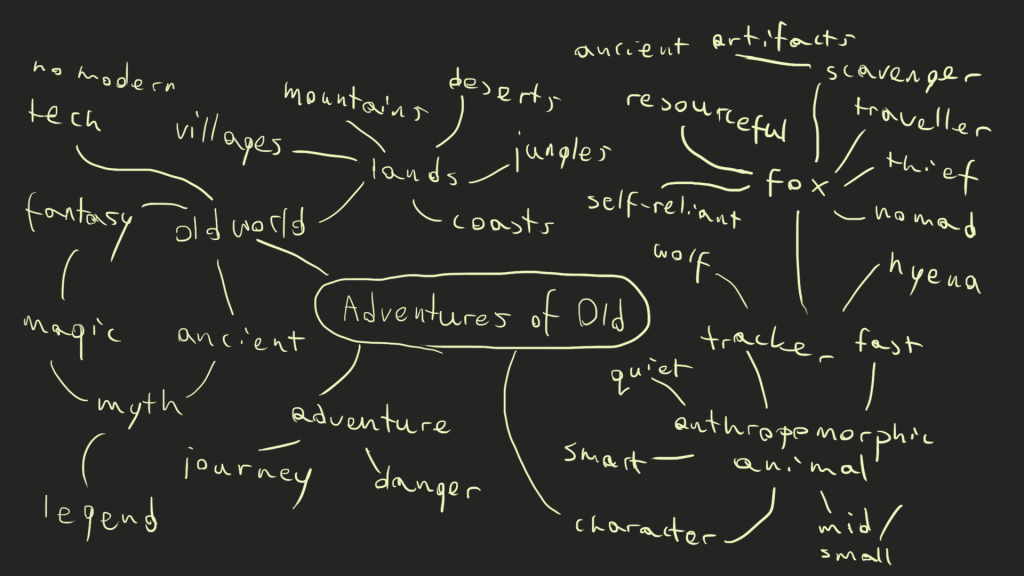 no modern
tech
villages
mountains
deserts
jungles
lands
coasts
fantasy
old world
magic
ancient
myth
legend
Adventures of Old
adventure
journey
danger
ancient artifacts
scavenger
resourceful
traveller
thief
fox
self-reliant
nomad
wolf
hyena
tracker
fast
quiet
anthropomorphic
animal
smart
character
mid/
small